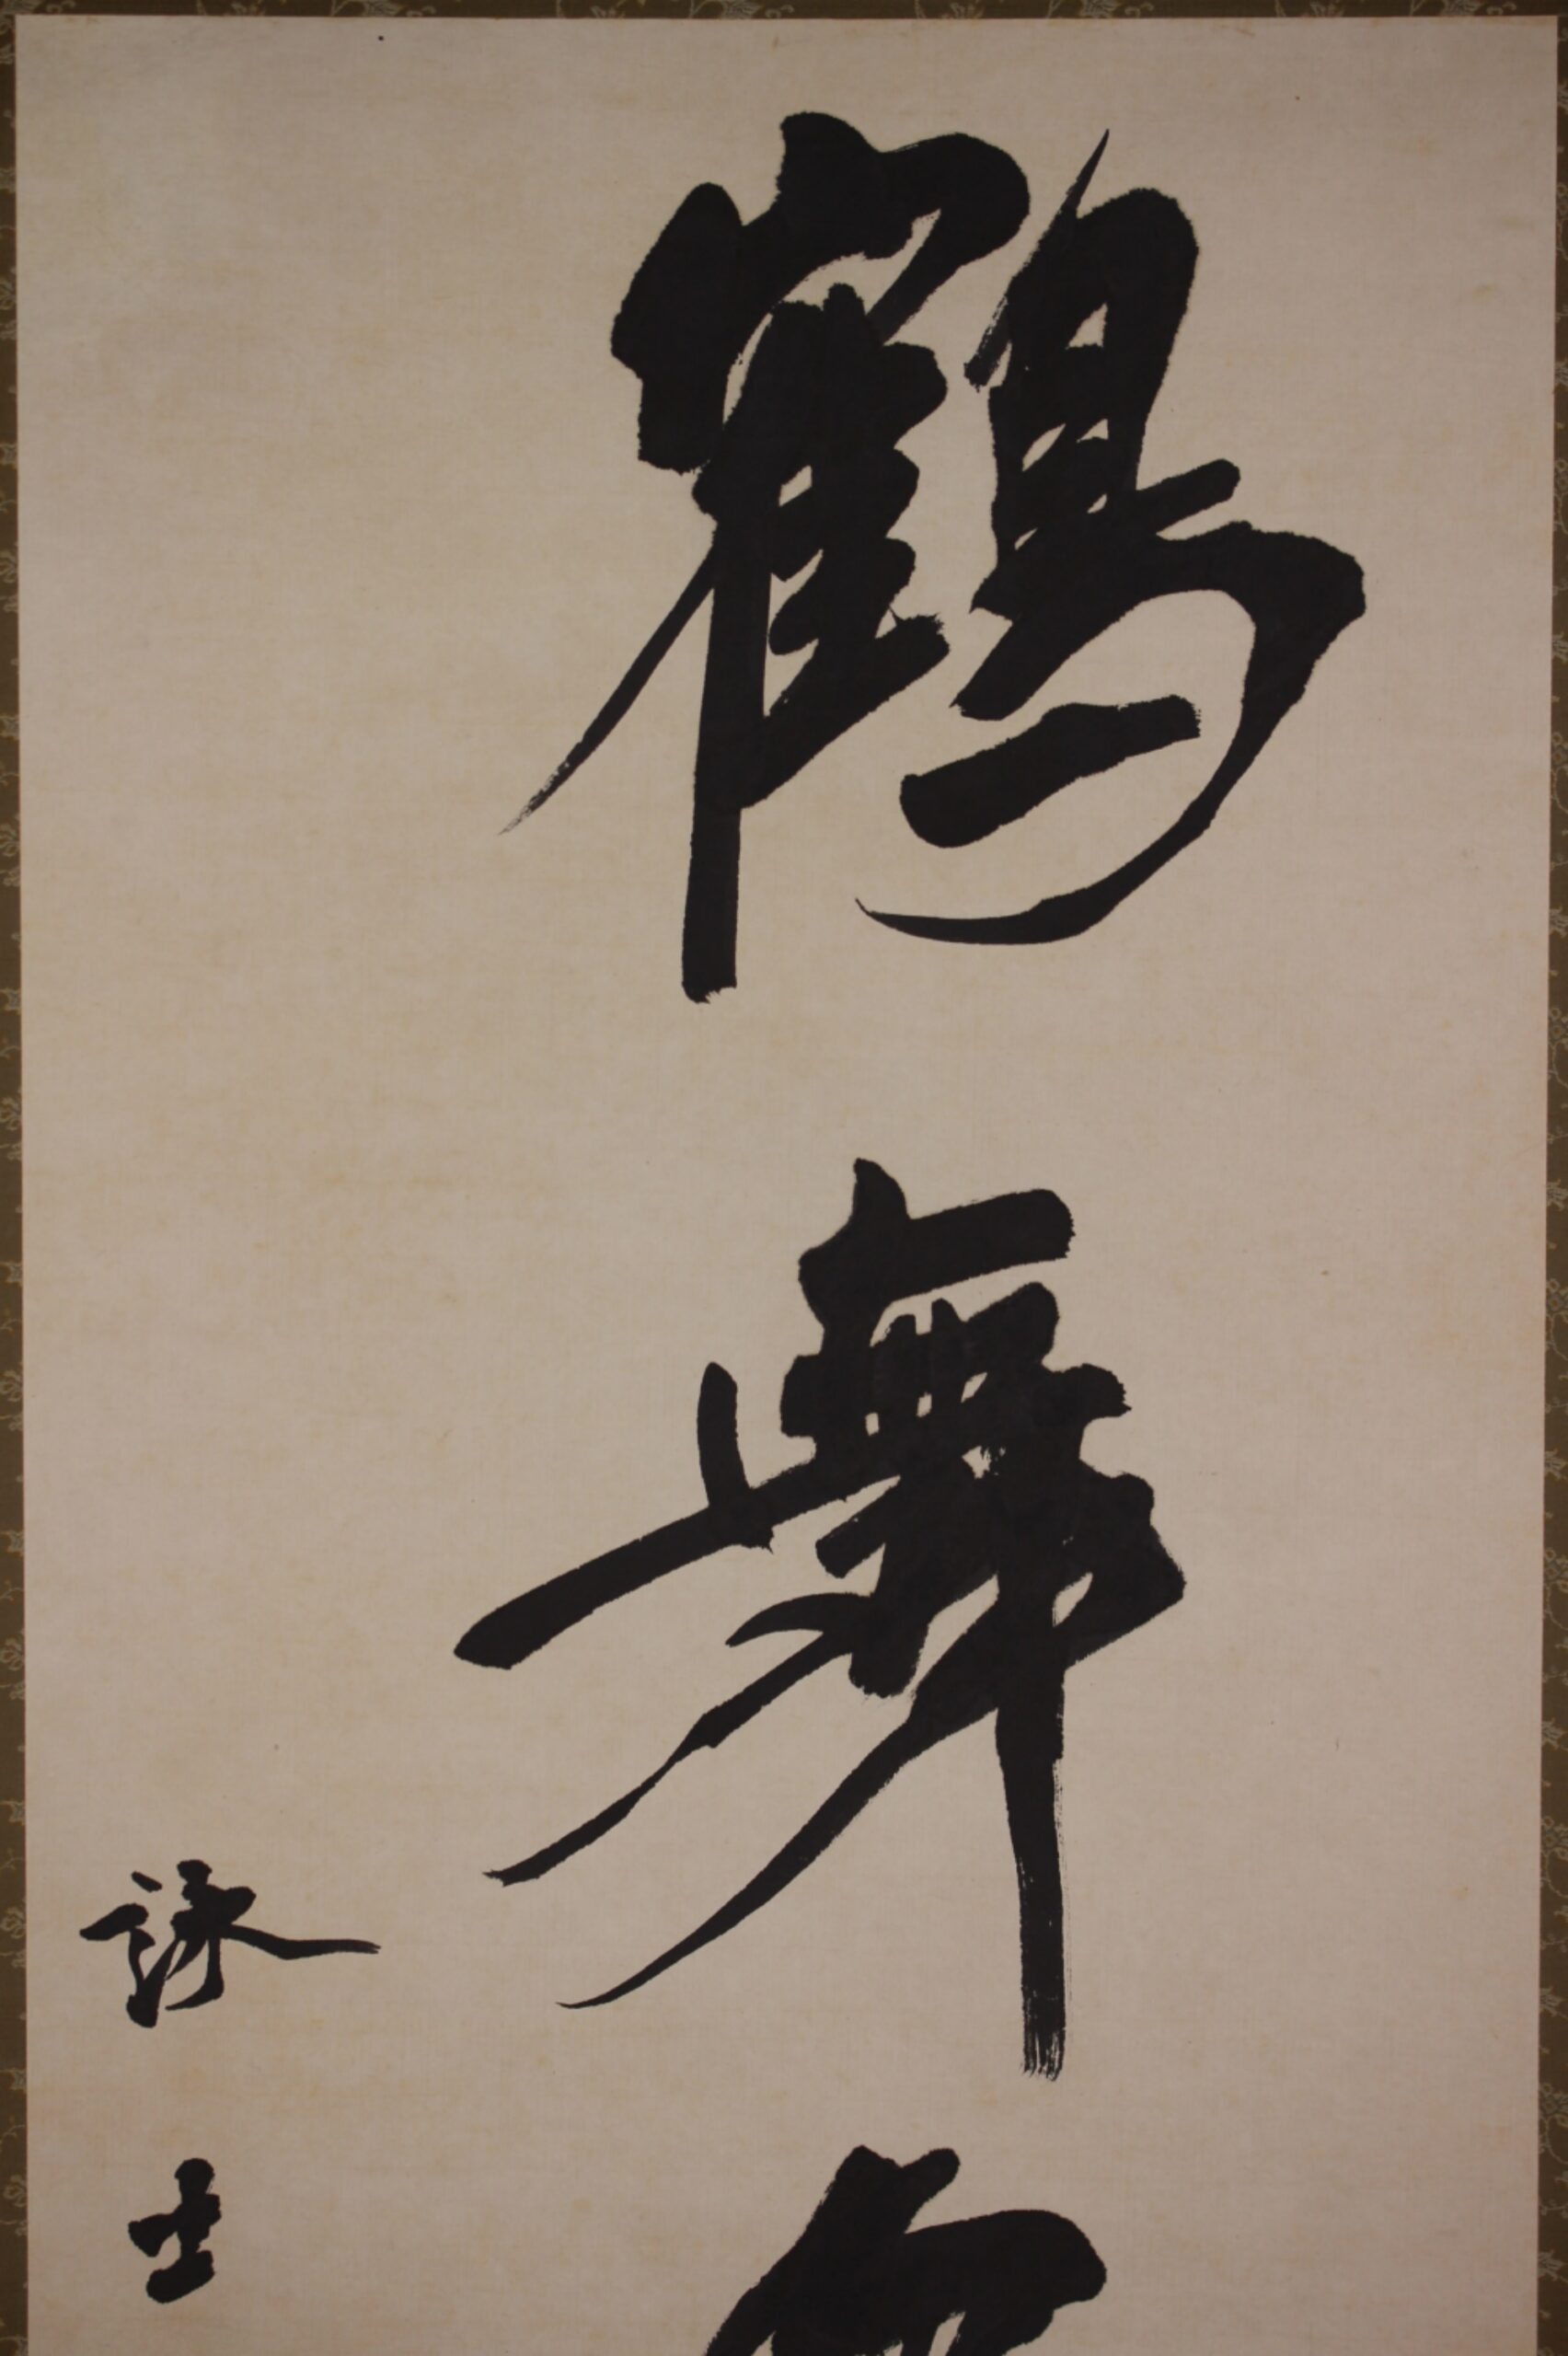 鶴舞
詠士